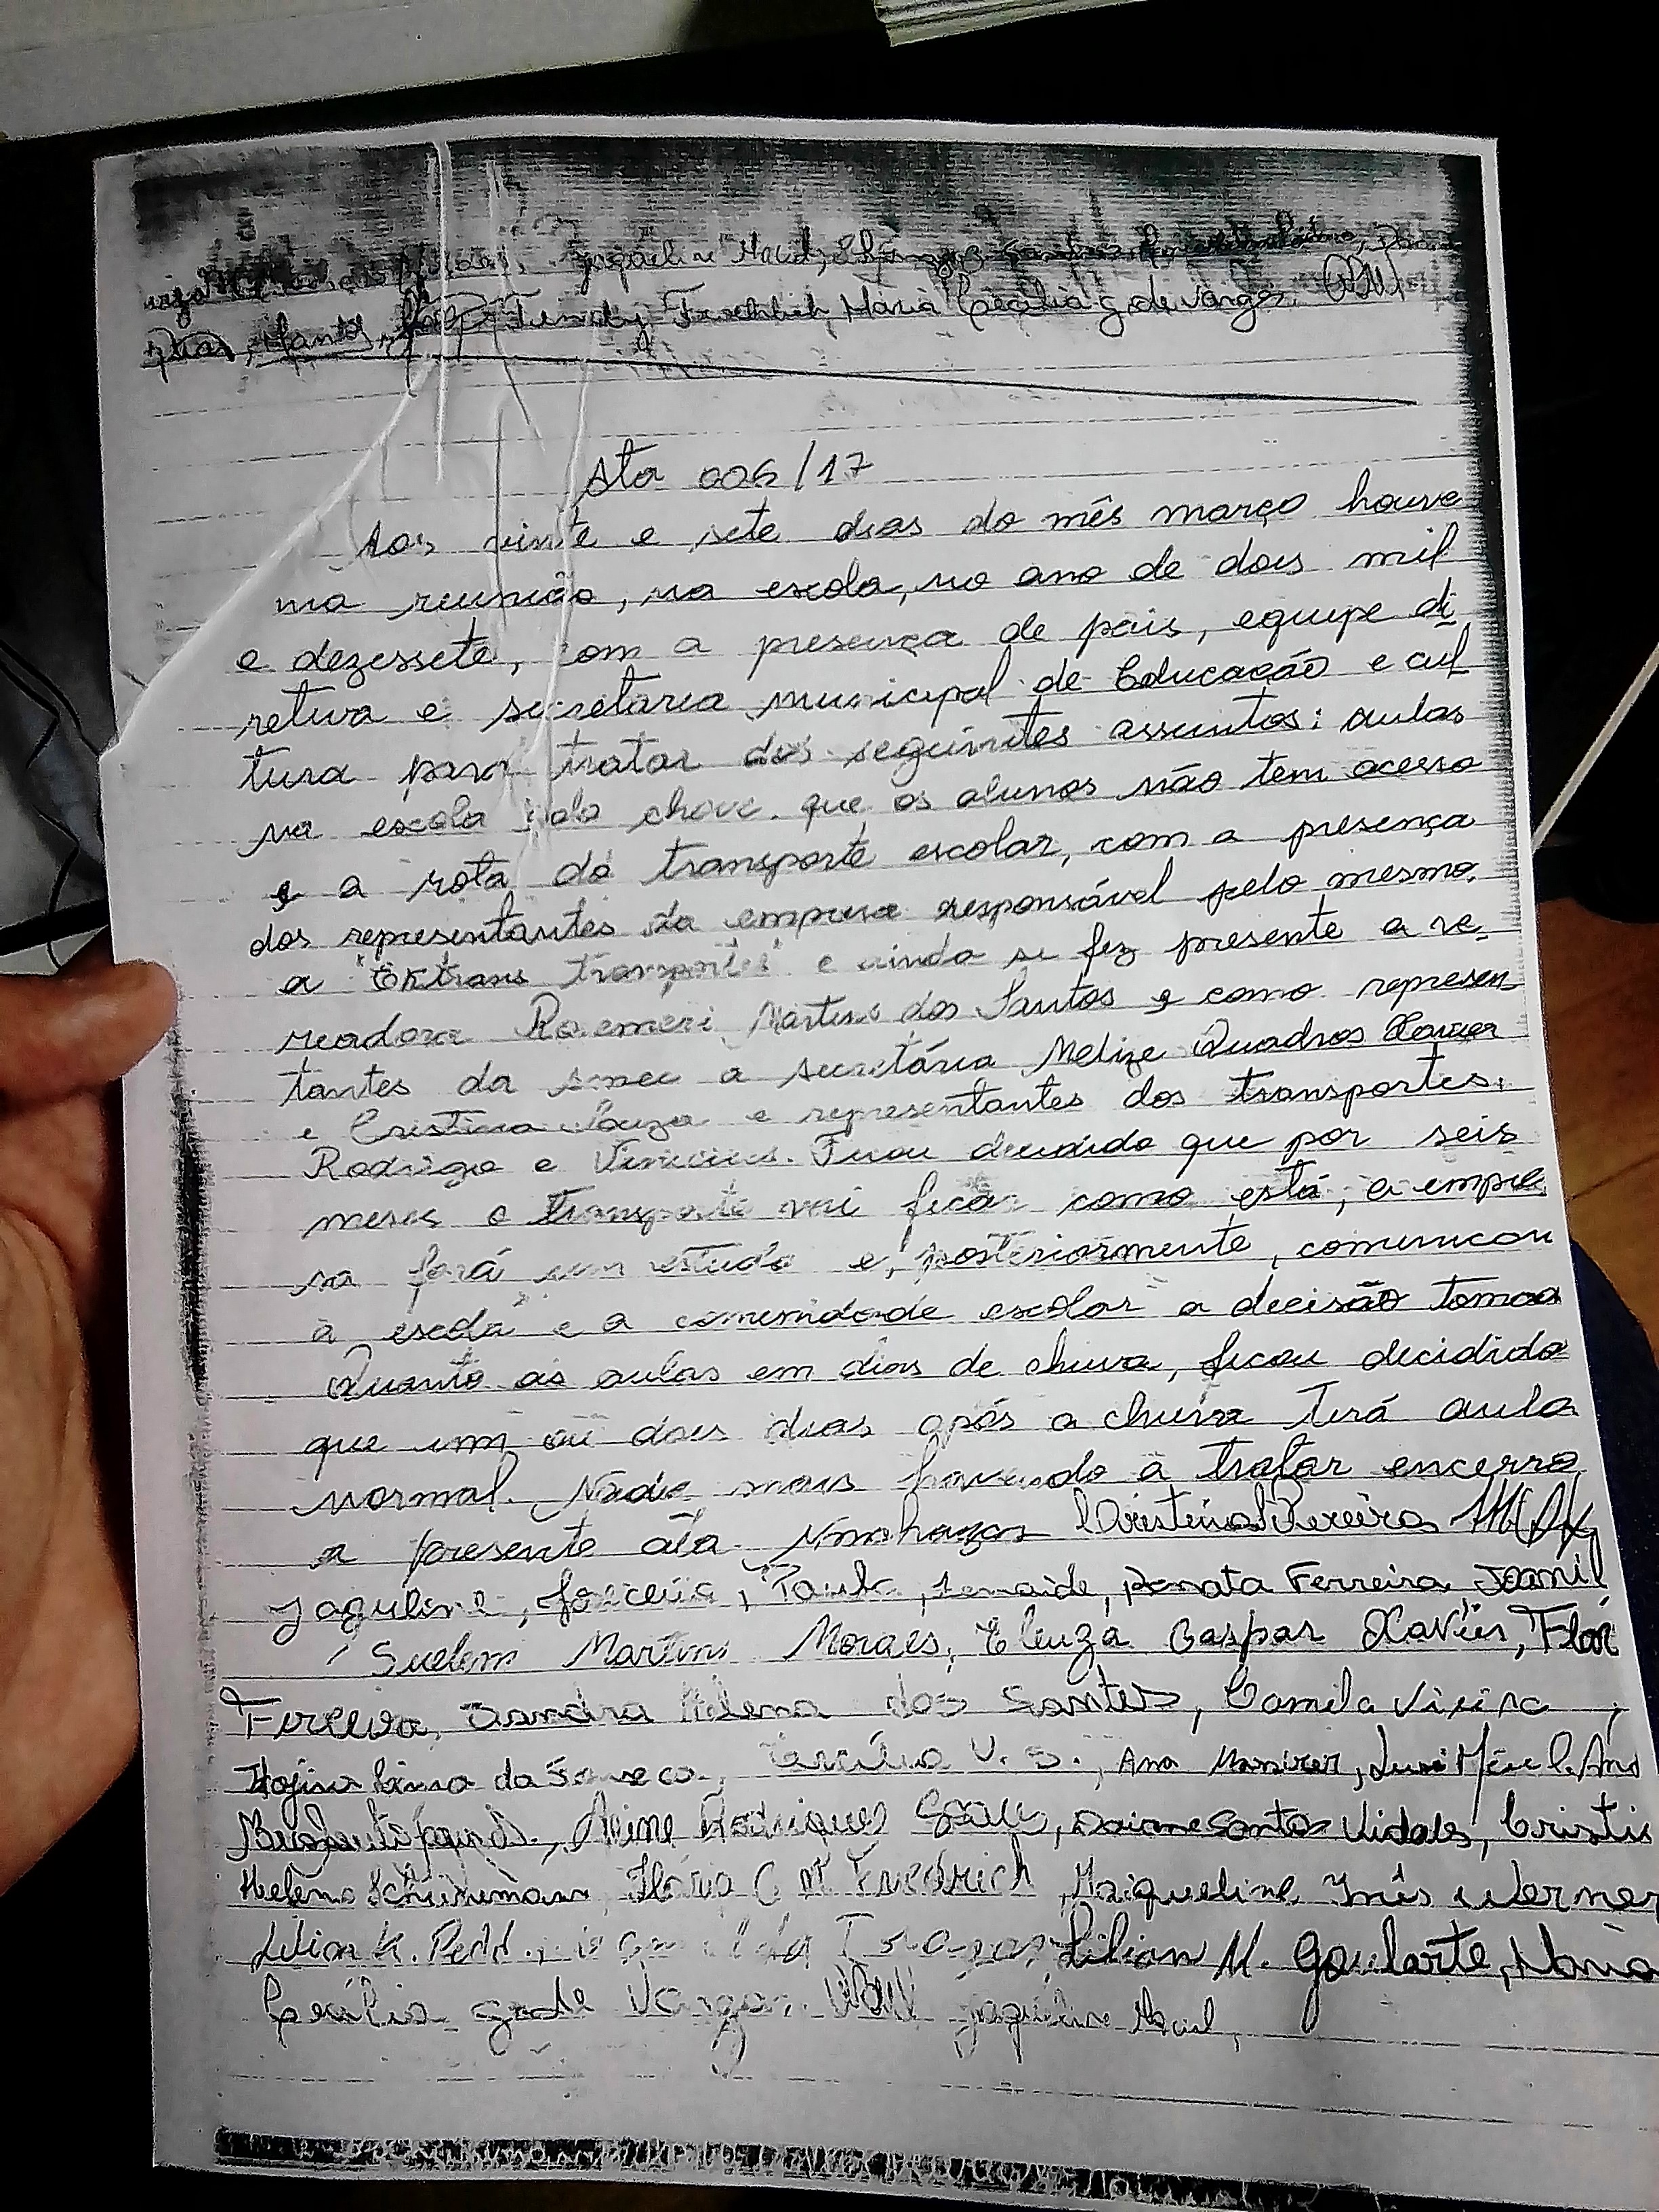 Jaqueline Maciel,
Maria Cecília G de Vargas.
Ata 006/17
Aos vinte e sete dias do mês março houve
ma reunião, na escola, no ano de dois mil
e dezessete, com a presença de pais, equipe di
retiva e secretaria municipal de Educação e cul
tura para tratar dos seguintes assuntos: aulas
na escola chove que os alunos não tem acesso
e a rota do transporte escolar, com a presença
dos representantes da empresa responsável pelo mesmo,
a "Ektrans transportes" e ainda se fez presente a ve_
readora Rosemeri Martins dos Santos e como represen_
tantes da smec a secretária Melize Quadros Xavier
e Cristina Souza e representantes dos transportes:
Rodrigo e Vinicius. Ficou decidido que por seis
meses o transporte vai ficar como está, a empre
sa fará um estudo e, posteriormente, comunicou
a escola e a comunidade escolar a decisão tomad
Quanto as aulas em dias de chuva, ficou decidido
que um ou dois dias após a chuva terá aula
normal. Nada mais havendo a tratar encerro
a presente ata. Cristina Pereira
Jaquline, Paula, Renata Ferreira, Joamil
Suelem Martins Moraes, Eleuza Gaspar Xavier, Flor
Ferreira, Sandra Helena dos Santos, Camila Vieira,
da Fonseca, V. S., Ana
Aline Rodrigues Daiane Santos Vidales, Cristis
Helena Schünemann, Flávia C M Friedrich, Maiqueline Inês Werner
Lilian K. Lilian M. Goularte, Maria
Cecília G de Vargas. Jaqueline Maciel,